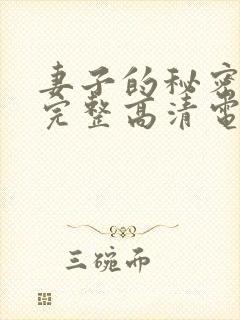 妻子的秘密
完整高清電
三碗而